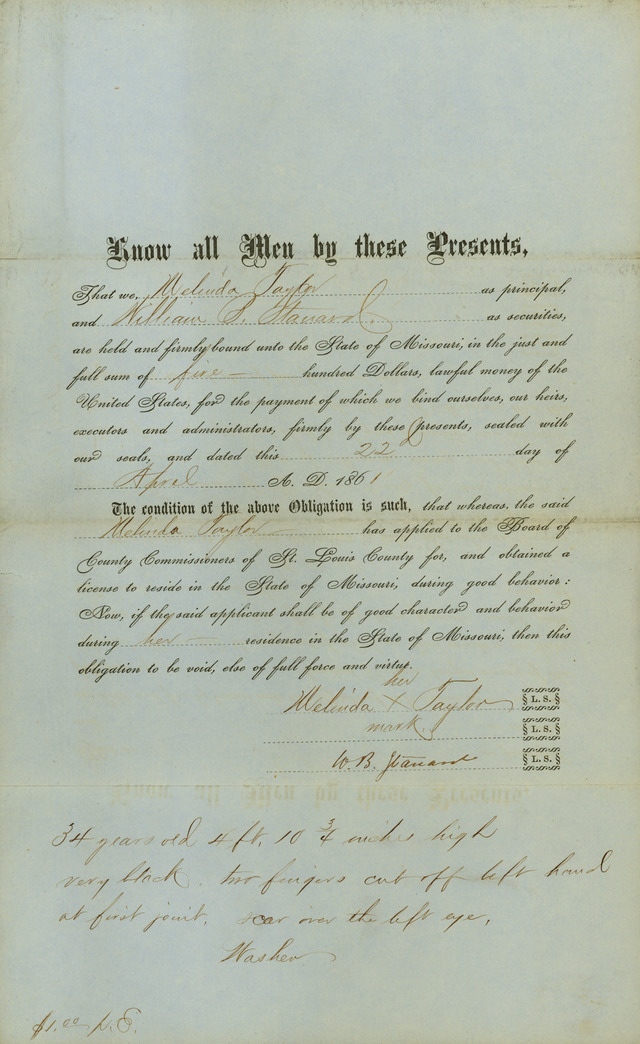 Know all Men by these Presents,
That we, Melinda Taylor as principal,
and William B. Stanard as securities,
are held and firmly bound unto the State of Missouri, in the just and
full sum of five hundred Dollars, lawful money of the
United States, for the payment of which we bind ourselves, our heirs,
executors and administrators, firmly by these presents, sealed with
our seals, and dated this 22 day of
April A. D. 1861
The condition of the above Obligation is such, that whereas, the said
Melinda Taylor has applied to the Board of
County Commissioners of St. Louis County for, and obtained a
license to reside in the State of Missouri, during good behavior:
Now, if the said applicant shall be of good character and behavior
during her residence in the State of Missouri, then this
obligation to be void, else of full force and virtue.
her
Melinda X Taylor L. S.
mark. L. S.
W. B. Stanard L. S.
34 years old 4 ft. 10 3/4 inches high
very black. two fingers cut off left hand
at first joint. scar over the left eye,
Washer
$1.00